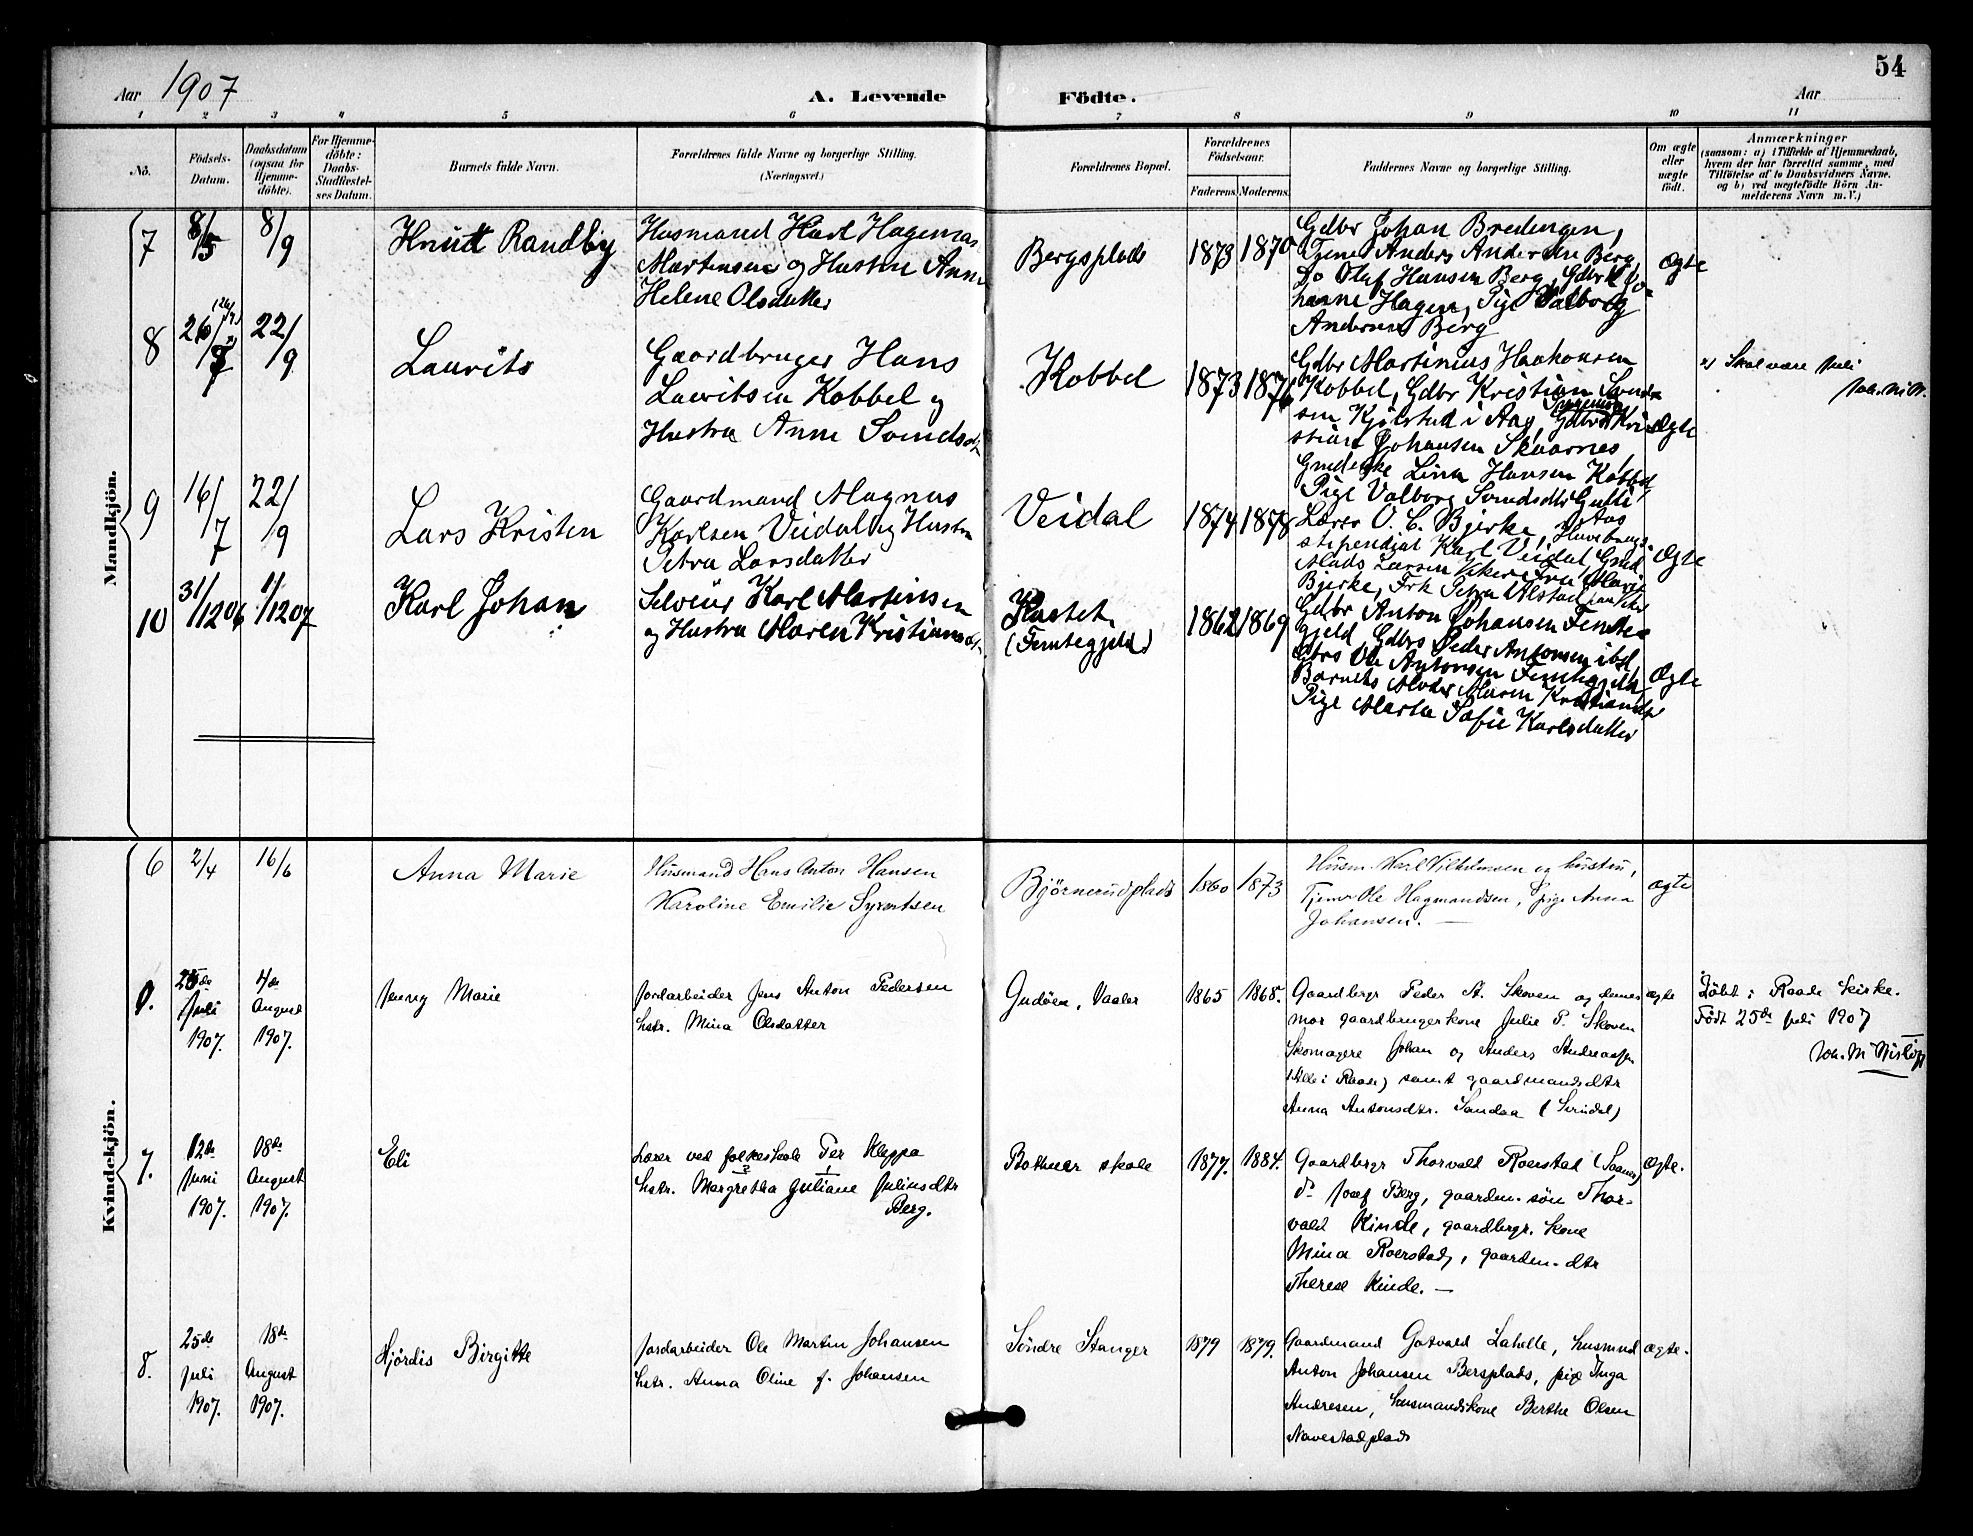 54
Aar 1907
A. Levende Födte.
Aar
1 2 3 4 5 6 7 8 9 10 11
No.
Födsels-Datum.
Daabsdatum (ogsaa for Hjemme-döbte).
For Hjemme-döbte: Daabs-Stadfæstel-ses Datum.
Barnets fulde Navn.
Forældrenes fulde Navne og borgerlige Stilling. (Næringsvei.)
Forældrenes Bopæl.
Forældrenes Födselsaar.
Faderens. Moderens.
Faddernes Navne og borgerlige Stilling.
Om ægte eller uægte födt.
Anmærkninger
(saasom: a) i Tilfælde af Hjemmedaab, hvem der har forrettet samme, med Tilföielse af to Daabsvidners Navne. og b) ved uægtefödte Börn An-melderens Navn m.V.)
Mandkjön.
7 8/5 8/9 Knut Randby
Husmand Karl Hageman
Martinsen og Hustru Anne
Helene Olsdatter
Bergsplads 1873 1870
Gdbr Johan Bredengen,
Tjener Anders Andersen Berg,
Do Olaf Hansen Berg, Gdbr Jo-
hanne Hagen, Pige Valborg
Andersen Berg
Ægte
8 26/7 22/9 Laurits
Gaardbruger Hans
Lauritsen Kobbel og
Hustru Anne Svendsdt.
Kobbel 1873 1876
Gdbr Martinius Haakonsen
Kobbel, Gdbr Kristian Svend-
sen Kjölstad i Aas, Gdbr Kri-
stian Johansen Skaarnes,
Lina Hansen Kobbel,
Pige Valborg Svendsdtr
Ægte
Skal være Juli
9 16/7 22/9 Lars Kristen
Gaardmand Magnus
Karlsen Veidal og Hustru
Petra Larsdatter
Veidal 1874 1878
Lærer O. C. Bjerke,
stipendiat Karl Veidal,
Mads Larsen Fru Marie
Bjerke, Frk Petra Alstad
Ægte
10 31/12 06 1/12 07 Karl Johan
Karl Martinsen
og Hustru Maren Kristiansdt.
(Femtegjeld)
1862 1869
Gdbr Anton Johansen Femte-
gjeld, Gdbrs Peder Antonsen ibd,
Gbrs Ole Antonsen Femtegjeld
Barnets Moder Maren Kristiansdtr
Pige Marta Sofie Karlsdatter
Ægte
Kvindekjön.
6 2/4 16/6 Anna Marie
Husmand Hans Anton Hansen
Karoline Emilie Syvertsen
Björnerudplads 1860 1873
Husm. Karl Vilhelmsen og hustru,
Tjener Ole Hagmandsen, Pige Anna
Johansen.
ægte
25de Juli 1907. 4de August 1907. Jenny Marie
Jordarbeider Jens Anton Pedersen
hstr. Mina Olsdatter
Gudöen, Vaaler 1865 1868.
Gaardbrgr Peder A. Skoven og dennes
mor gaardbrugerkone Julie P. Skoven
Skomagere Johan og Anders Andreassen
(Lille i Raade) samt gaardmandsdtr
Anna Antonsdtr. Sandaa (Svindal)
ægte
Döbt i Raade kirke.
Födt 25de juli 1907
7. 12de Juni 1907. 18de August 1907. Eli
Lærer ved folkeskole Per Kleppa
hstr. Margretha Juliane Juliusdtr
Berg.
Botner skole 1877. 1884.
Gaardbrgr Thorvald Roerstad (Saaner)
do Josef Berg, gaardm. sön Thor-
vald Kinde, gaardbrgr. kone
Mina Roerstad, gaardm. dtr
Therese Kinde. —
ægte.
8. 25de Juli 1907. 18de August 1907. Hjördis Birgitte
Jordarbeider Ole Martin Johansen
hstr. Anna Oline f. Johansen
Söndre Stanger 1879 1879.
Gaardmand Gotvald Lahelle, husmnd
Anton Johansen Bersplads, pige Inga
Andresen, husmandskone Berthe Olsen
Navestadplads
ægte.